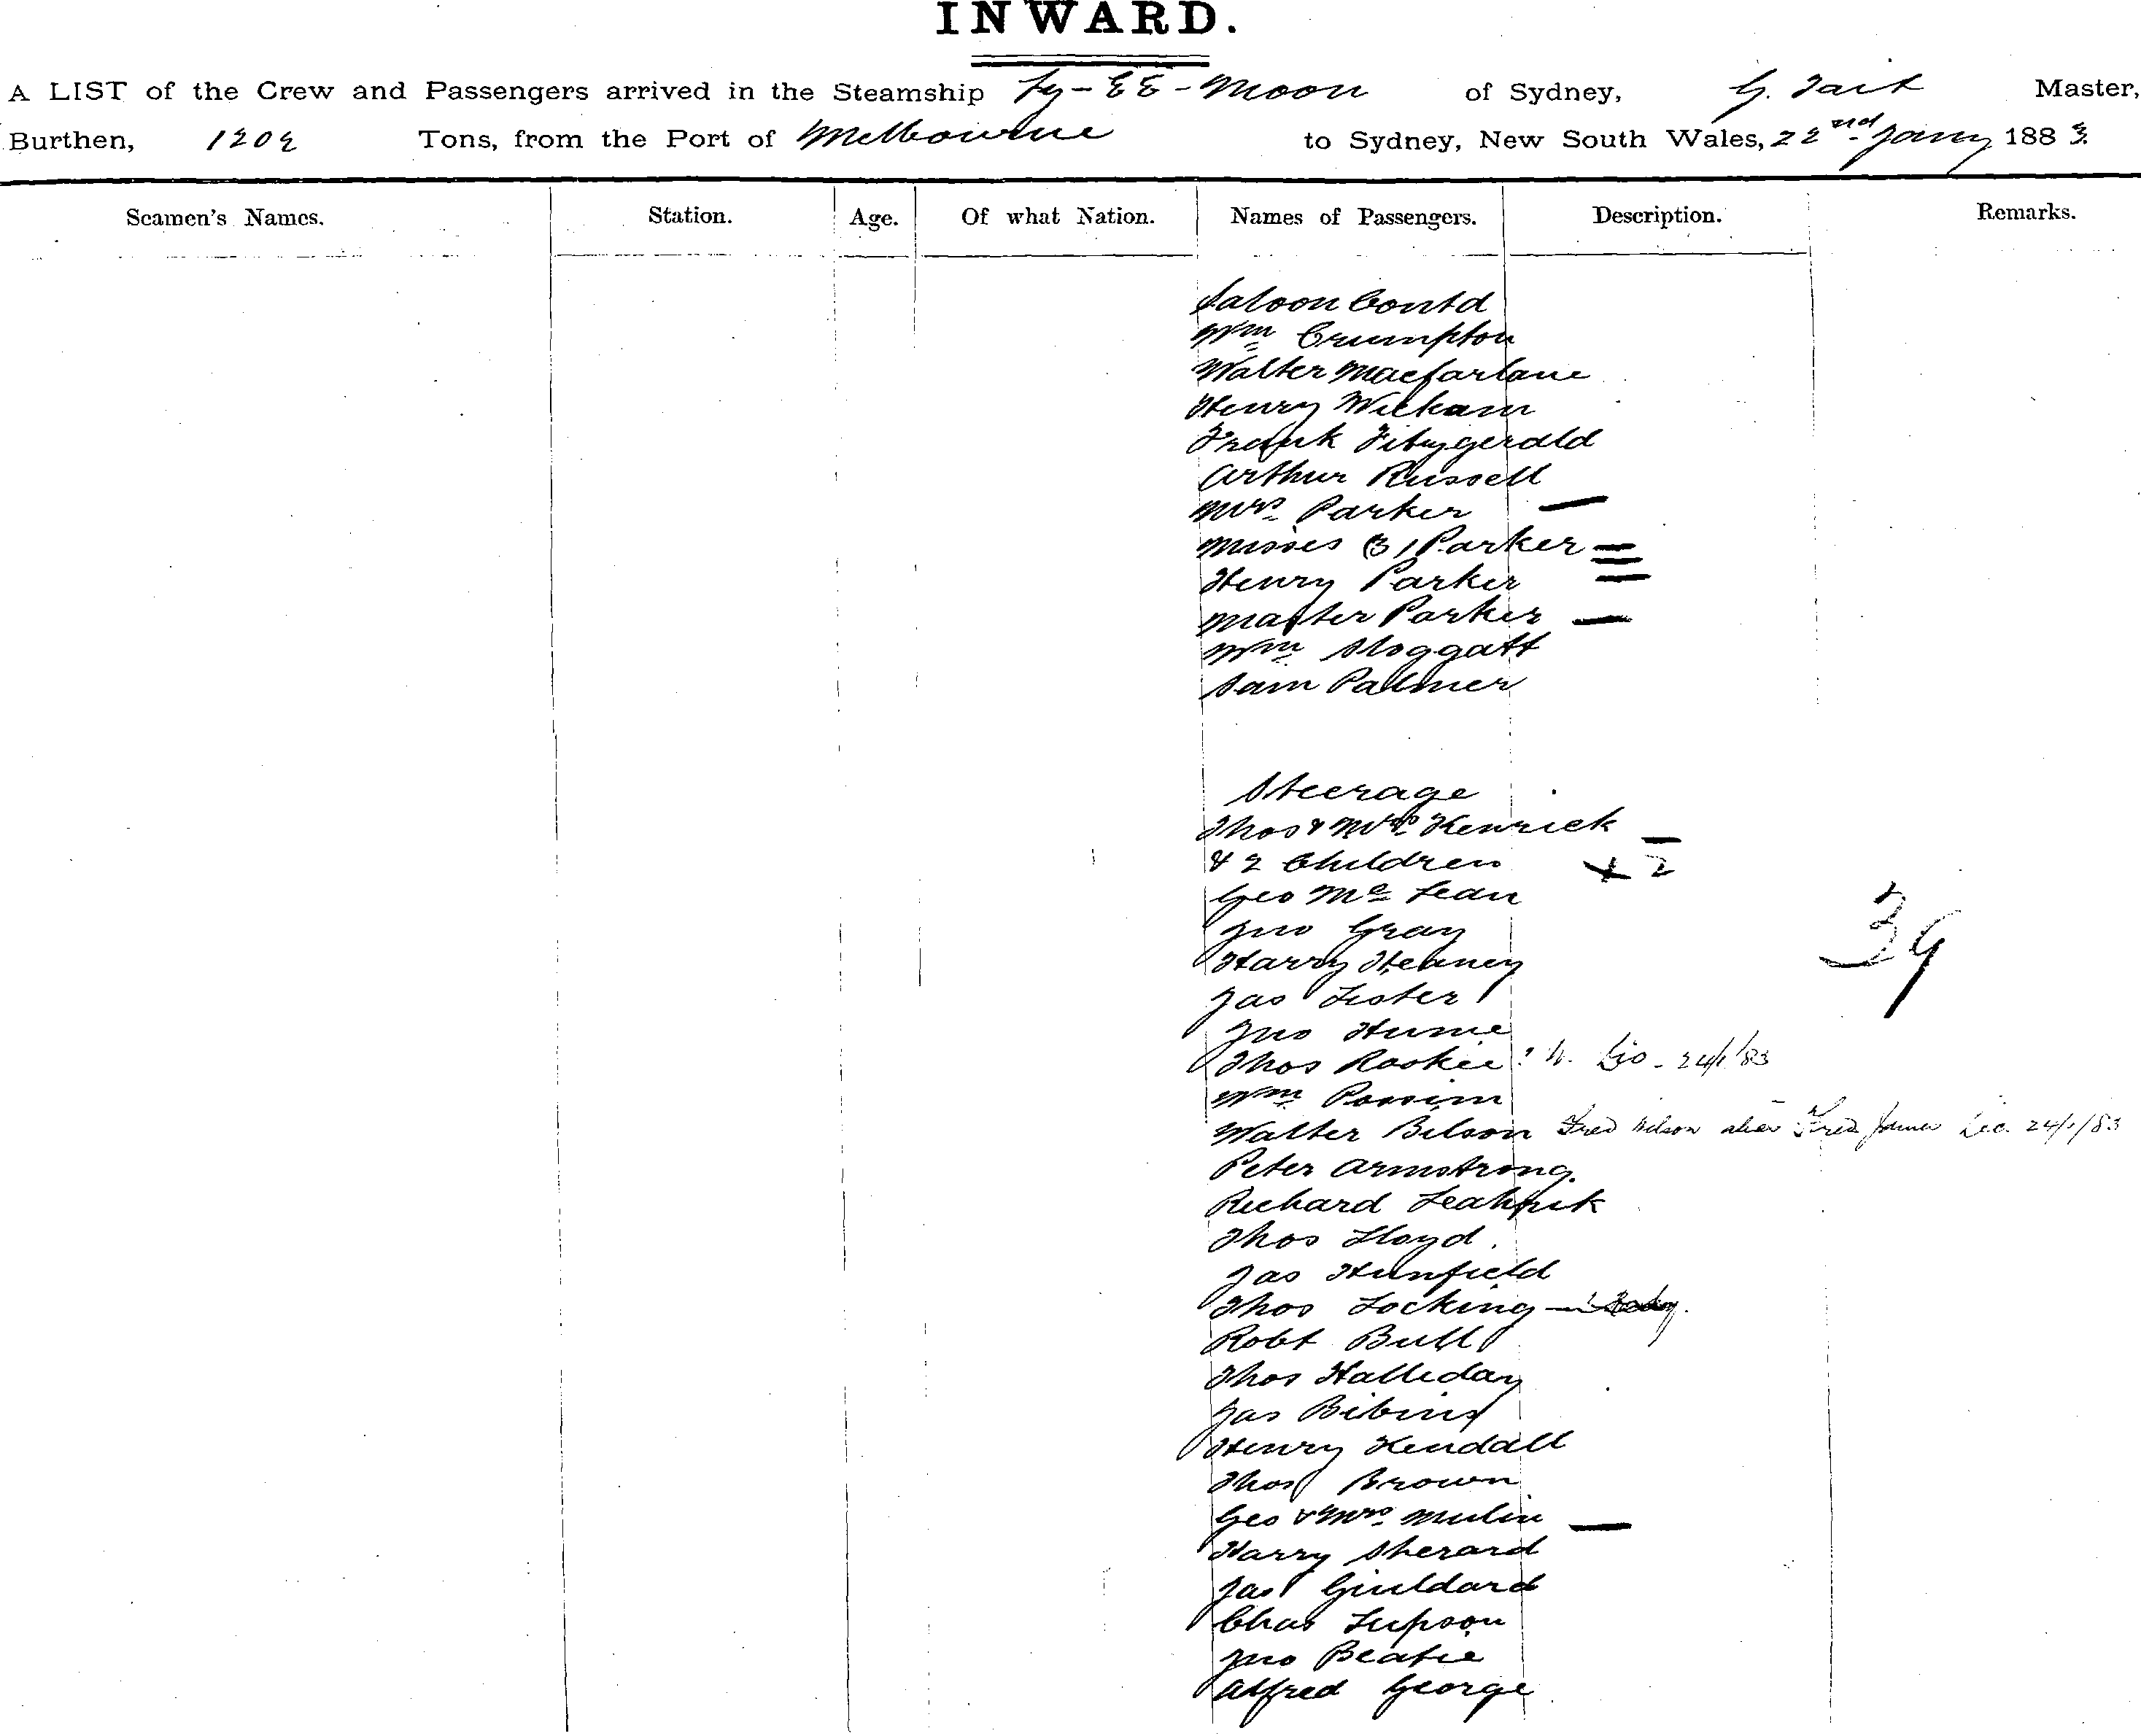 INWARD.
A LIST of the Crew and Passengers arrived in the Steamship Ly-EE-Moon of Sydney, G. Tait Master,
Burthen, 1202 Tons, from the Port of Melbourne to Sydney, New South Wales, 22nd Jany 1883
Seamen's Names. Station. Age. Of what Nation. Names of Passengers. Description. Remarks.
Saloon Contd
Wm Crumpton
Walter Macfarlane
Henry Wickam
Frank Fitzgerald
Arthur Russell
Mrs. Parker —
Misses (3) Parker
Henry Parker
Master Parker —
Wm Sloggatt
Sam Palmer
Steerage
Thos & Mrs. Kenrick —
& 2 Children + 2
Geo Mc Lean
Jno Gray
39
Harry Heaney
Jas Lister
Jno Hume
Thos 24/1/83
Wm
Walter Bilson Fred Wilson alias Fred James 24/1/83
Peter Armstrong
Richard
Thos Lloyd
Jas Hunfield
Thos Locking
Robt Bull
Thos Halliday
Jas Bibins
Henry Kendall
Thos Brown
Geo & Mrs. Mulin —
Harry Sherard
Jas Guildard
Chas Lupson
Jno Beatie
Alfred George